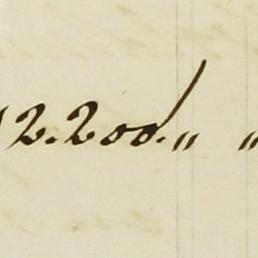 12.200." "